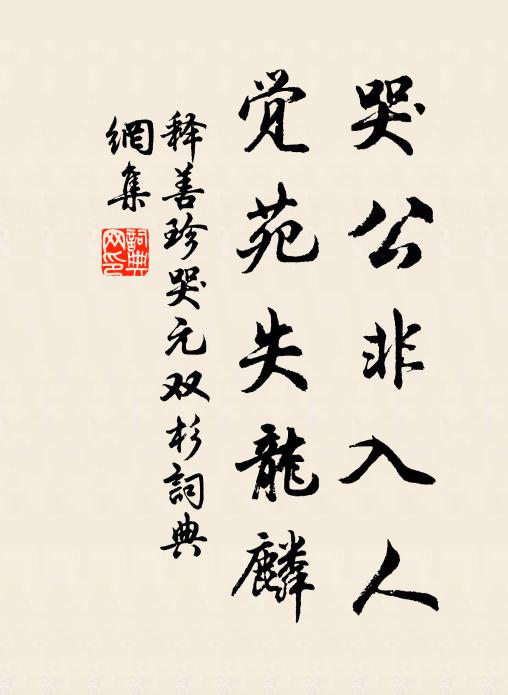 哭公非入人
觉苑失龍麟
释善珍哭元双杉詞典
網集
詞典
网印